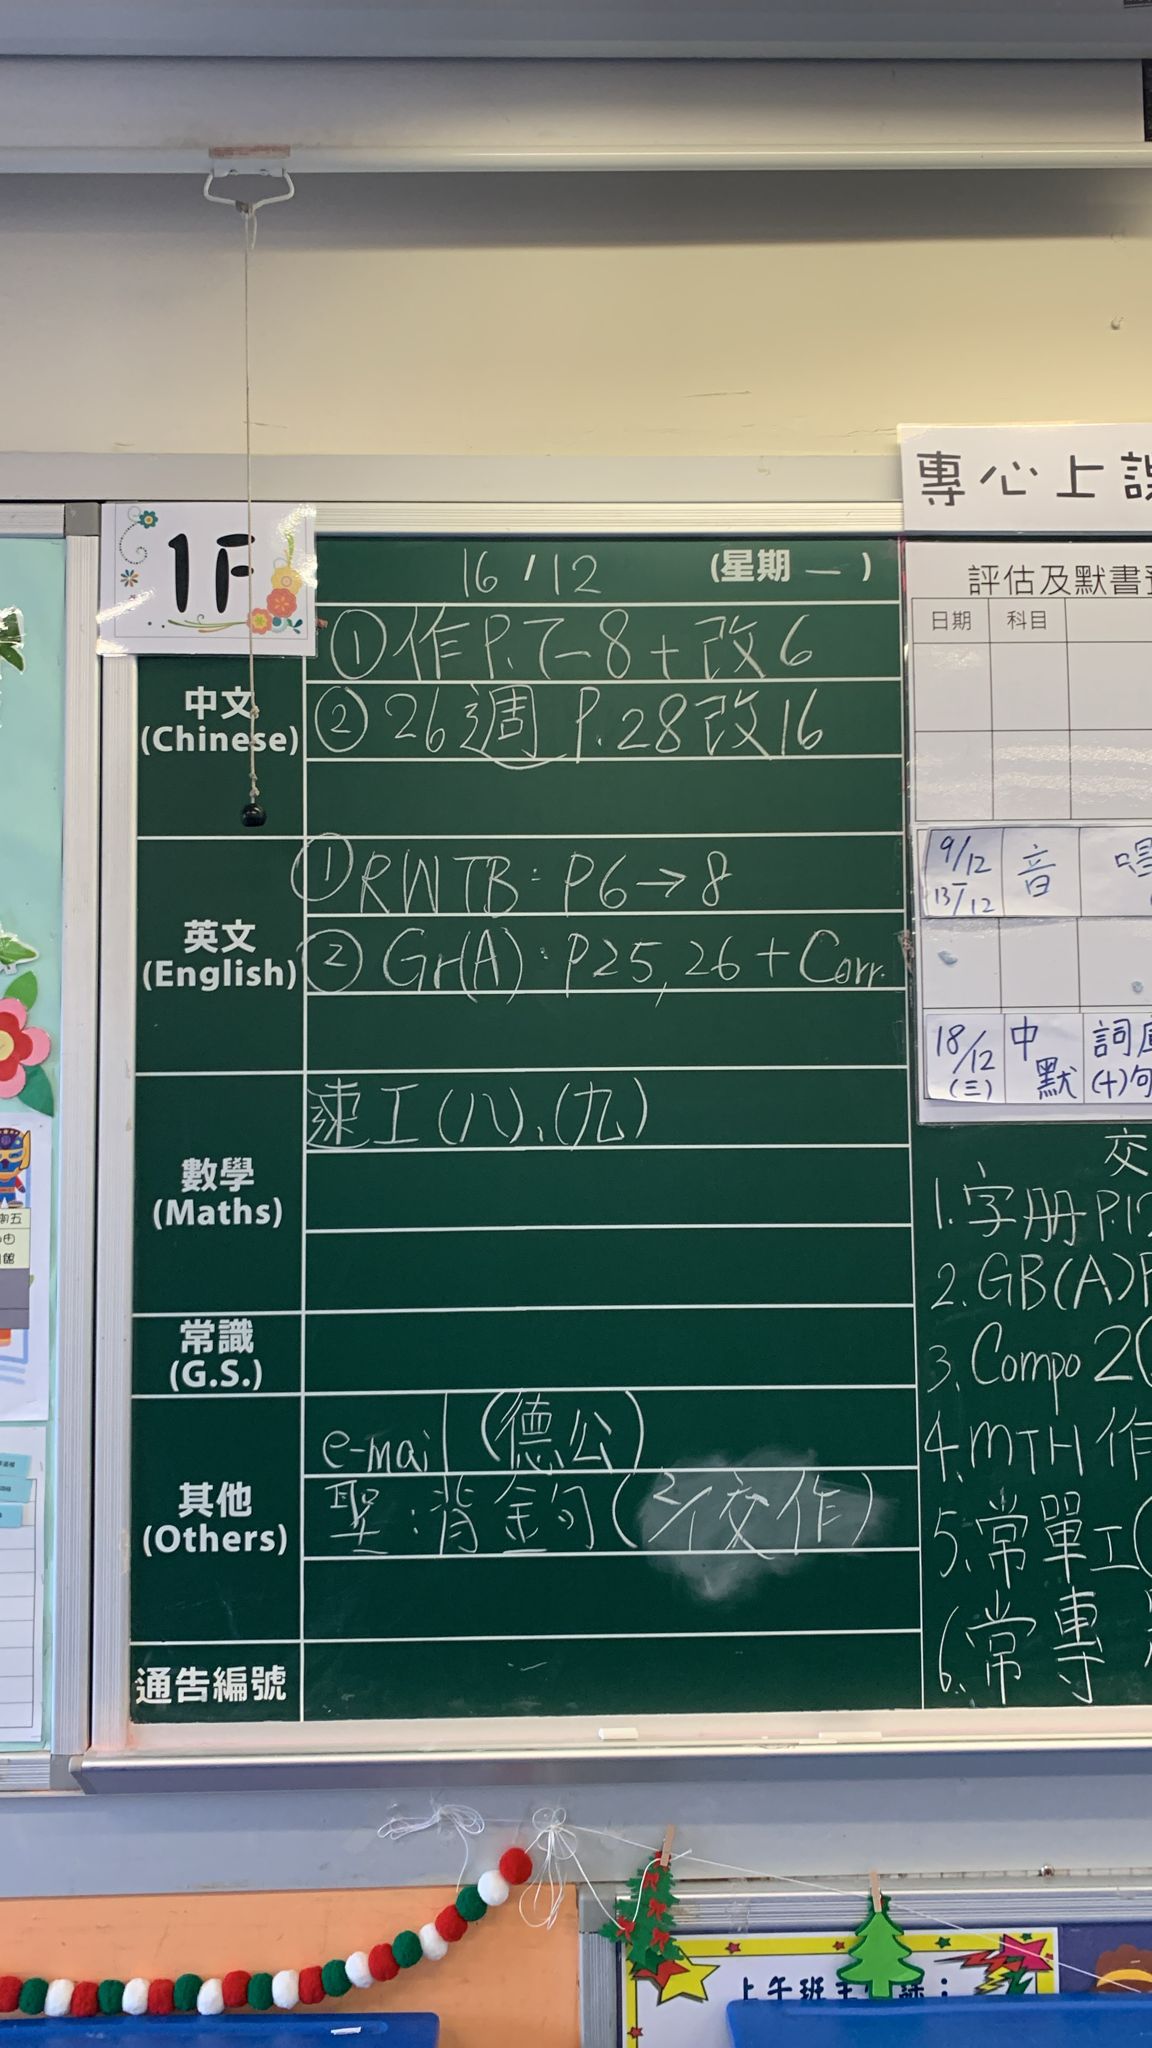 專心上
1F
16/12 (星期一)
中文
(Chinese)
①作P.7-8+改6
②26週P.28改16
英文
(English)
①RWTB: P6→8
②Gr(A): P25, 26 + Corr.
數學
(Maths)
速工(八)、(九)
常識
(G.S.)
其他
(Others)
e-mail (德公)
聖:背金句(2/1交作)
通告編號
評估及默書
日期 科目
9/12
13/12
音
18/12
(三)
中
默
詞
(十)句
交
1.字冊P.1
2.GB(A)P
3.Compo 2(
4.MTH作
5.常單工(
6.常專
上午班主